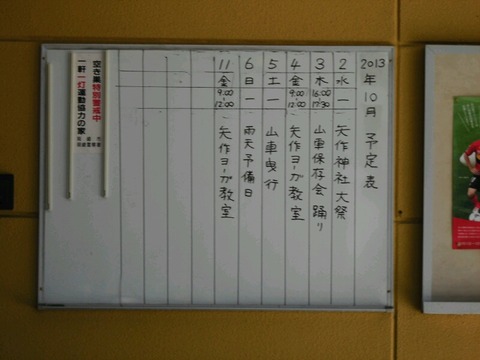 2013年10月 予定表
2 水 ー 矢作神社大祭
3 木 16:00 17:30 山車保存会踊り
4 金 9:00 12:00 矢作ヨーガ教室
5 土 ー 山車曳行
6 日 ー 雨天予備日
11 金 9:00 12:00 矢作ヨーガ教室
空き巣特別警戒中
一軒一灯運動協力の家